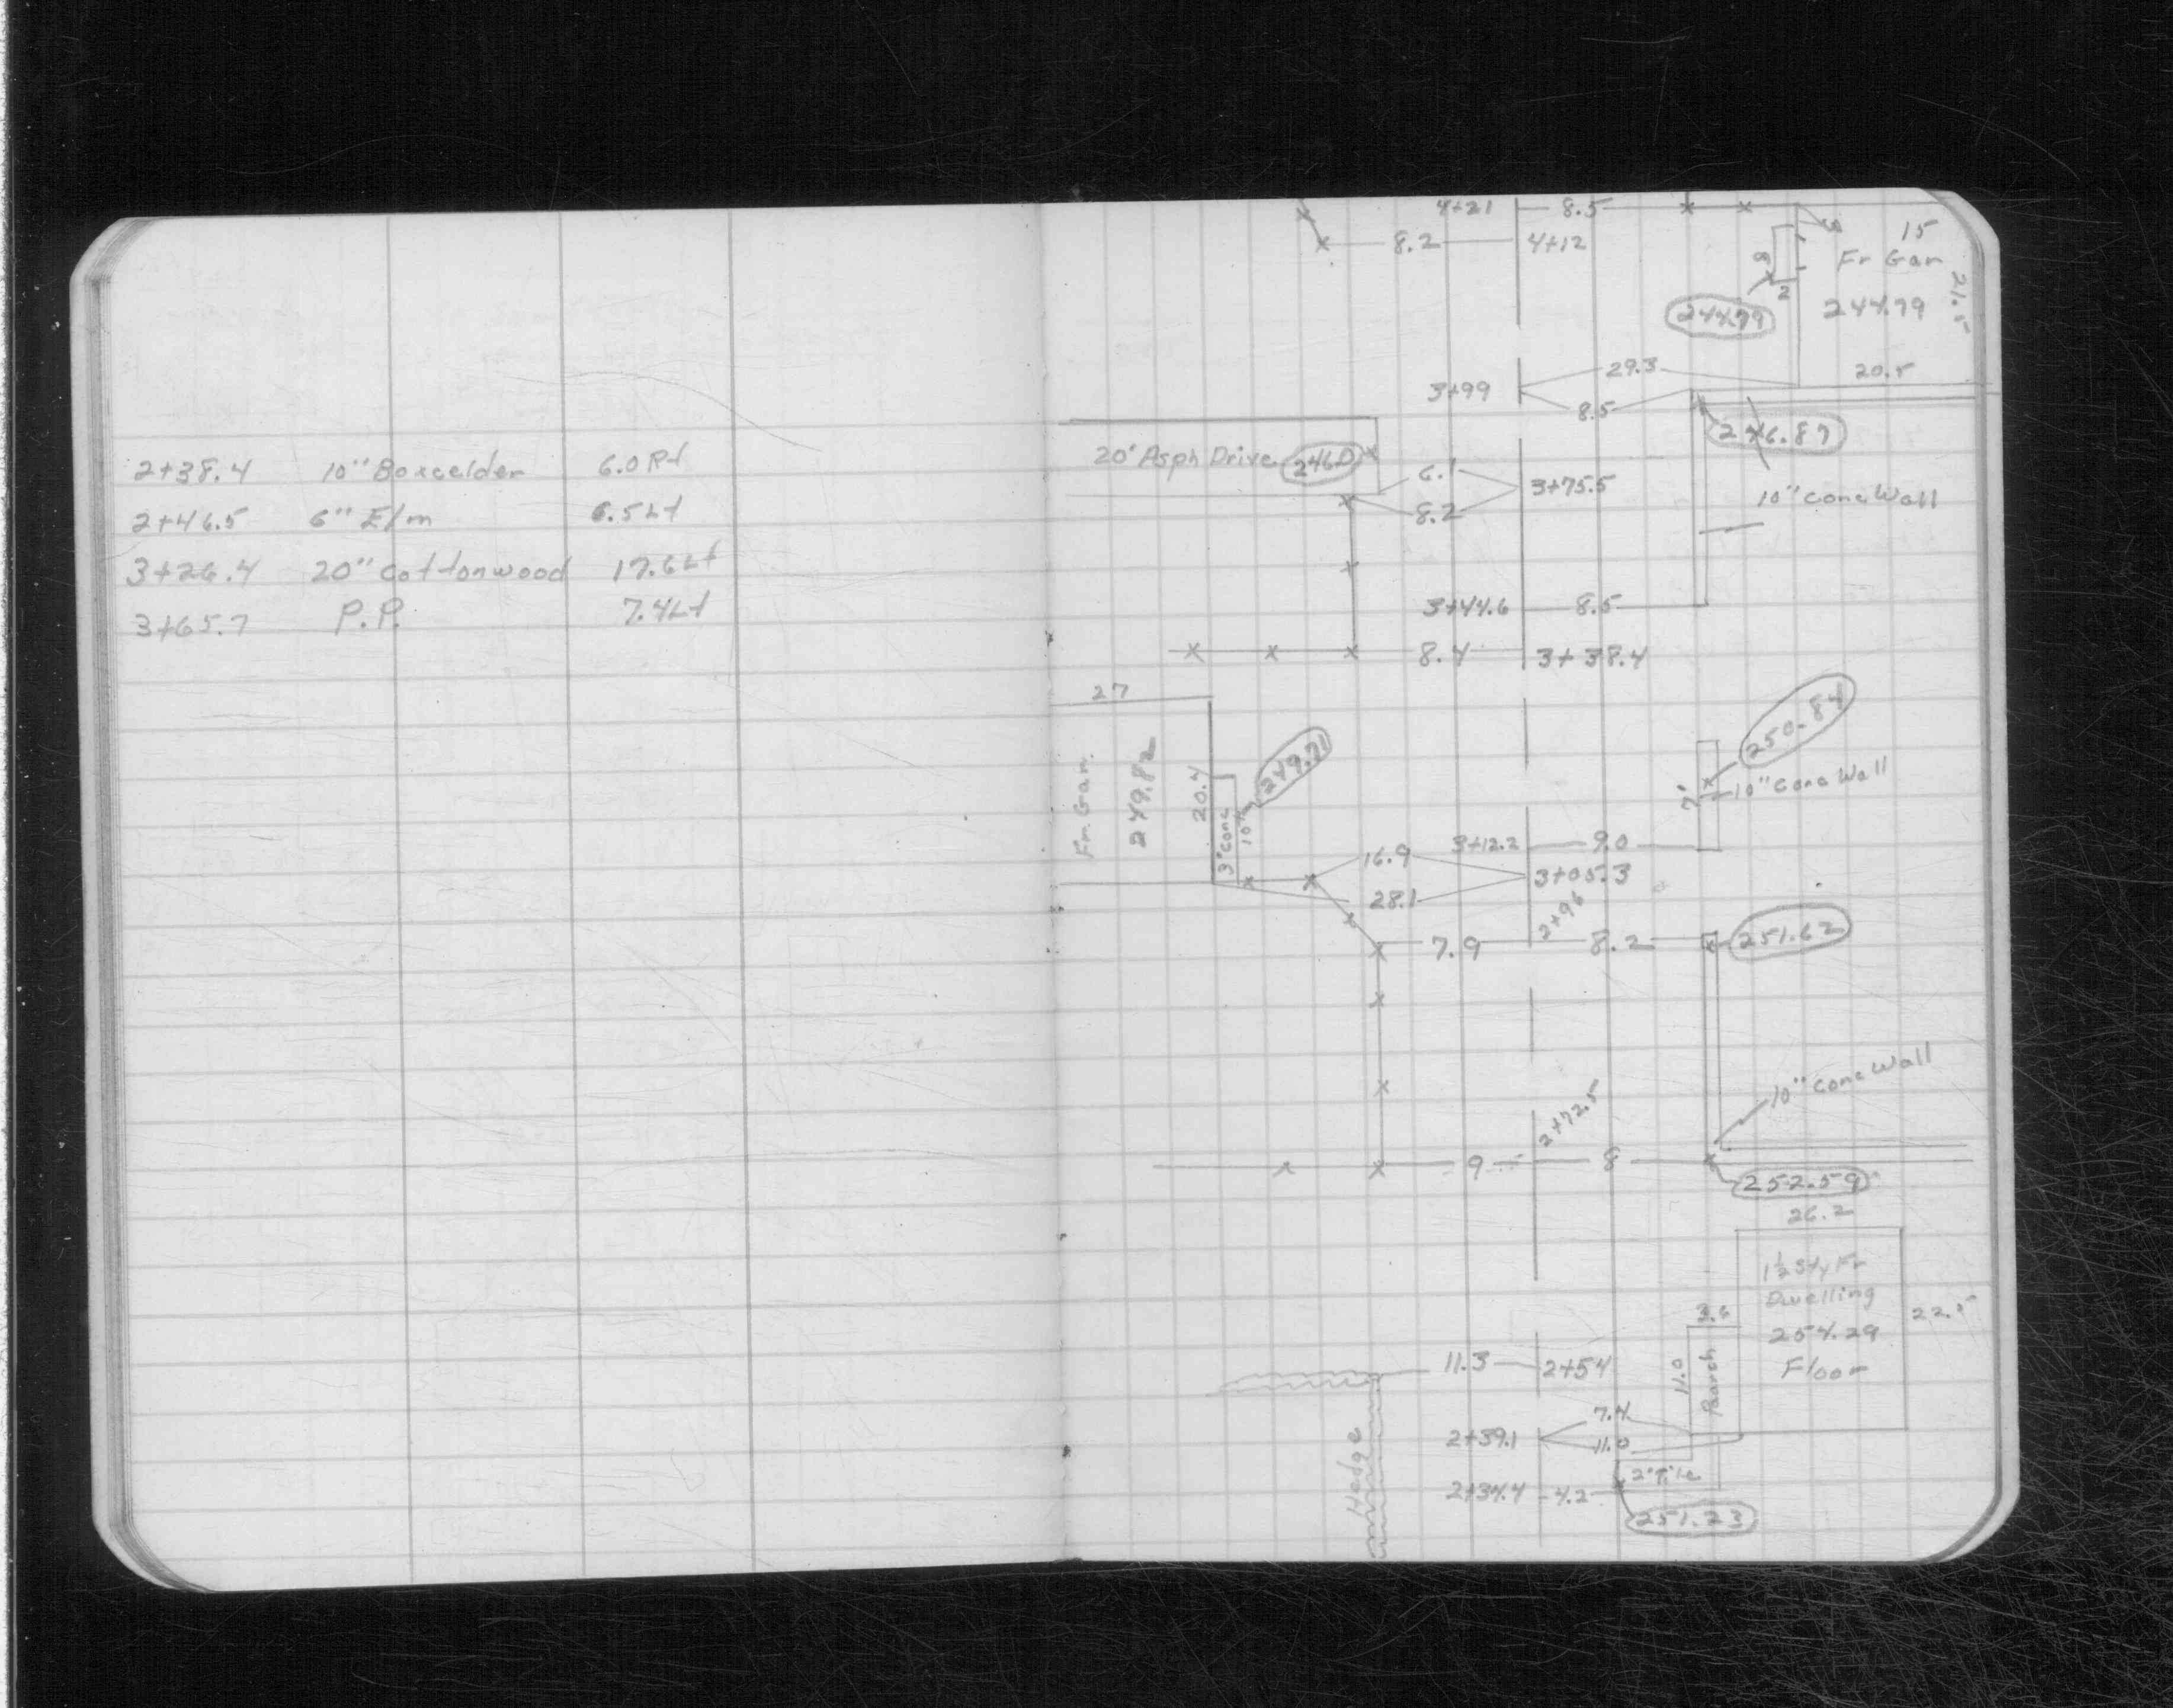 2+38.4 10" Boxcelder 6.0 Rt
2+46.5 6" Elm 6.5 Lt
3+26.4 20" Cottonwood 17.6 Lt
3+65.7 P.P. 7.4 Lt
4+21 8.5
8.2 4+12
3
15
8
Fr Gar
21.5
2
244.79
244.79
29.3
3+99
20.5
8.5
246.87
20' Asph Drive
6.1
3+75.5
8.2
10" conc Wall
3+44.6 8.5
8.4 3+38.4
27
250.84
249.21
Fr. Gar.
249.82
20.4
3' conc
10"
7'
10" Conc Wall
3+12.2 9.0
16.9
3+05.3
28.1
2+96
7.9 8.2
251.62
10" conc Wall
2+72.5
9 8
252.59
26.2
1½ Sty Fr
Dwelling
254.29
Floor
22.5
3.6
11.0
Paarch
11.3 2+54
7.4
2+39.1
11.0
Hedge
2' Tile
2+34.4 4.2
251.23